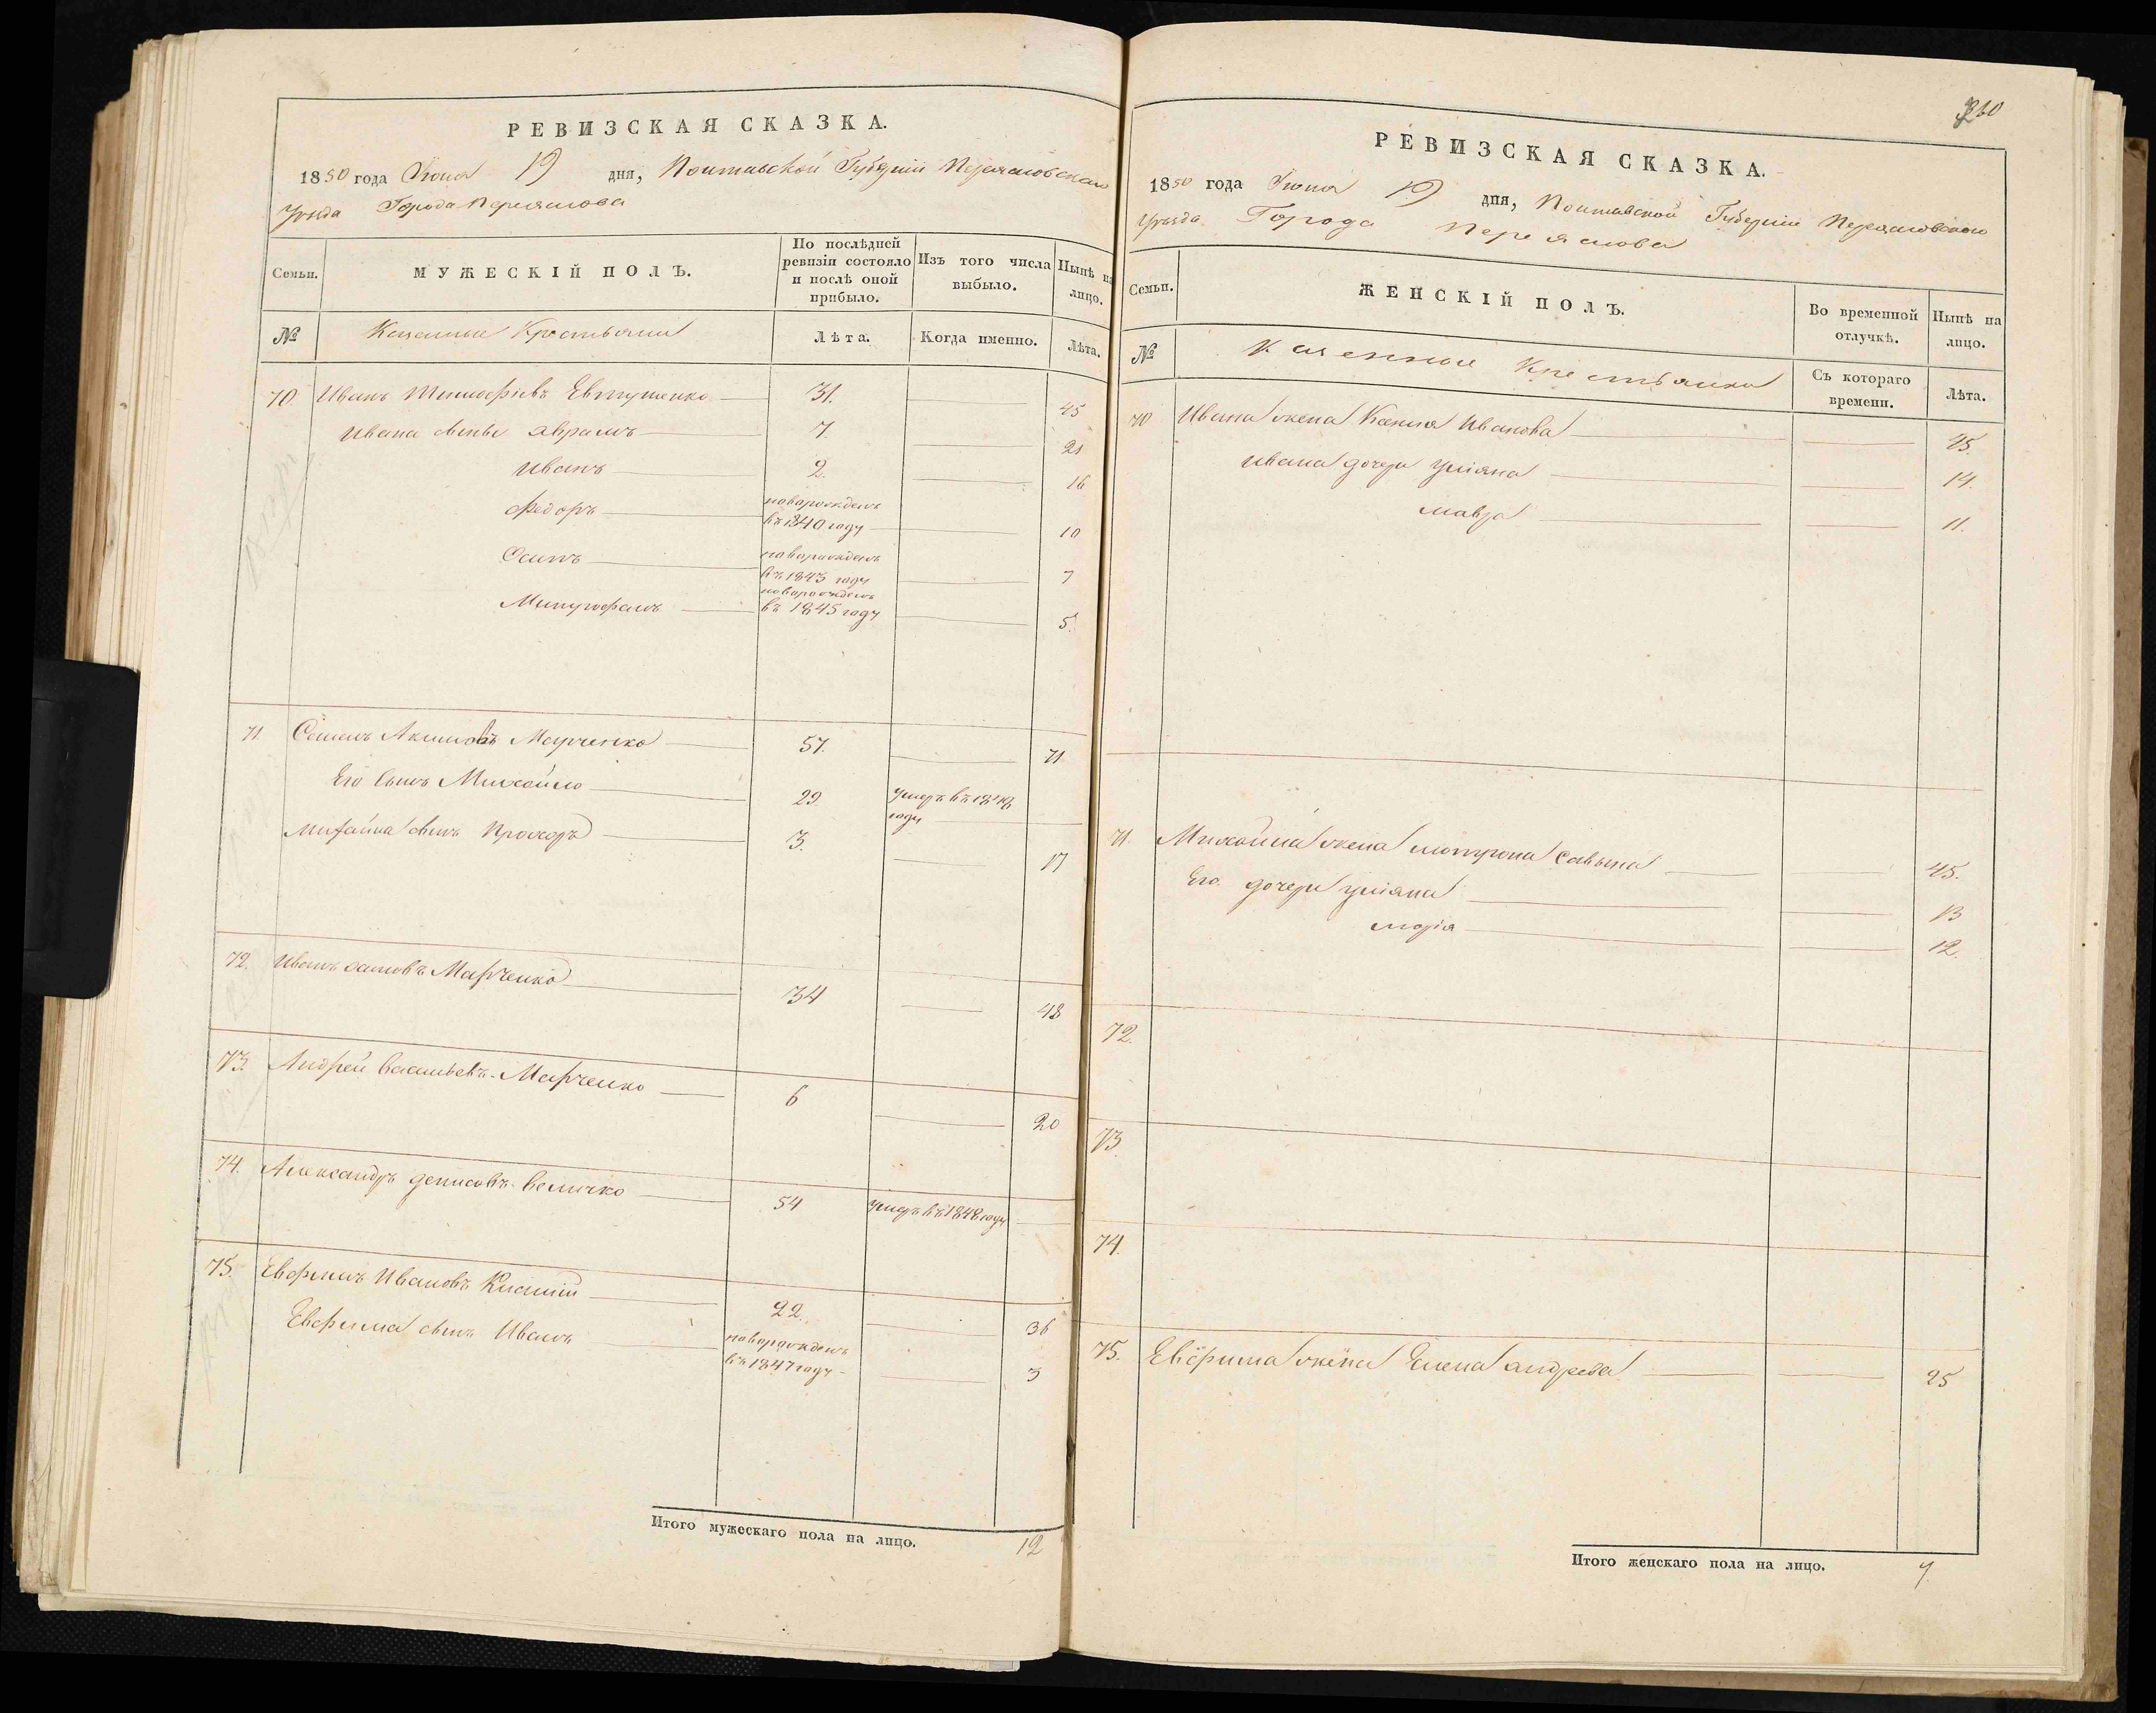 РЕВИЗСКАЯ СКАЗКА.
1850 года Июня 19 дня, Полтавской Губернии Переяславскаго
Уезда Города Переяслова
Семьи.
МУЖЕСКІЙ ПОЛЪ.
По послѣдней ревизіи состояло и послѣ оной прибыло.
Изъ того числа выбыло.
Нынѣ на лицо.
№
Казенные Крестьяни
Лѣта.
Когда именно.
Лѣта.
70 Иванъ Тимофѣевъ Евтушенко 31. 45
Ивана сыны Аврамъ 7. 21
Иванъ 2. 16
Федоръ новорожденъ въ 1840 году 10
Осипъ новорожденъ въ 1843 году 7
Митрофанъ новорожденъ въ 1845 году 5.
71. Семенъ Акимовъ Марченко 57. 71
Его сынъ Михайло 29. умеръ въ 1848 году
Михайла сынъ Прохоръ 3. 17
72. Иванъ Марченко 34 48
73. Андрей Васильевъ Марченко 6 20
74. Александръ Денисовъ Величко 54 умеръ въ 1848 году
75. Евфимъ Ивановъ 22. 36
Евфима сынъ Иванъ новорожденъ въ 1847 году 3
Итого мужескаго пола на лицо. 12
РЕВИЗСКАЯ СКАЗКА.
1850 года Июня 19 дня, Полтавской Губерніи Переяславскаго
Уезда Города Переяслова
Семьи.
ЖЕНСКІЙ ПОЛЪ.
Во временной отлучкѣ.
Нынѣ на лицо.
№
Казенные Крестьянки
Съ котораго времени.
Лѣта.
70 Ивана жена Ксенія Иванова 45.
Ивана дочери Уліяна 14.
Мавра 11.
71. Михайла жена Мотрона Савына 45.
Его дочери Уліяна 13
Марія 12.
72.
73
74.
75. Евфима жена Елена Андреева 25
Итого женскаго пола на лицо. 7.